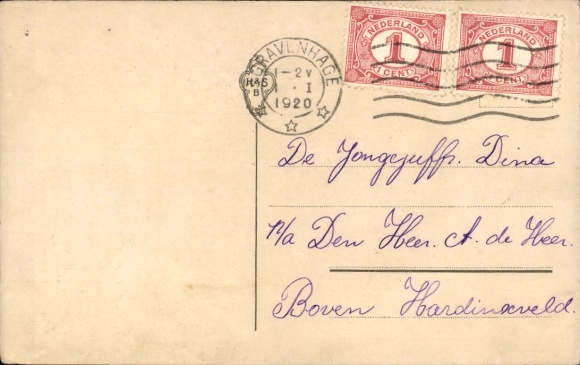 'S GRAVENHAGE
1-2V
1.I
1920
NEDERLAND
1
1 CENT
NEDERLAND
1
1 CENT
De Jongejuffr. Dina
p/a Den Heer. A. de Heer.
Boven Hardinxveld.